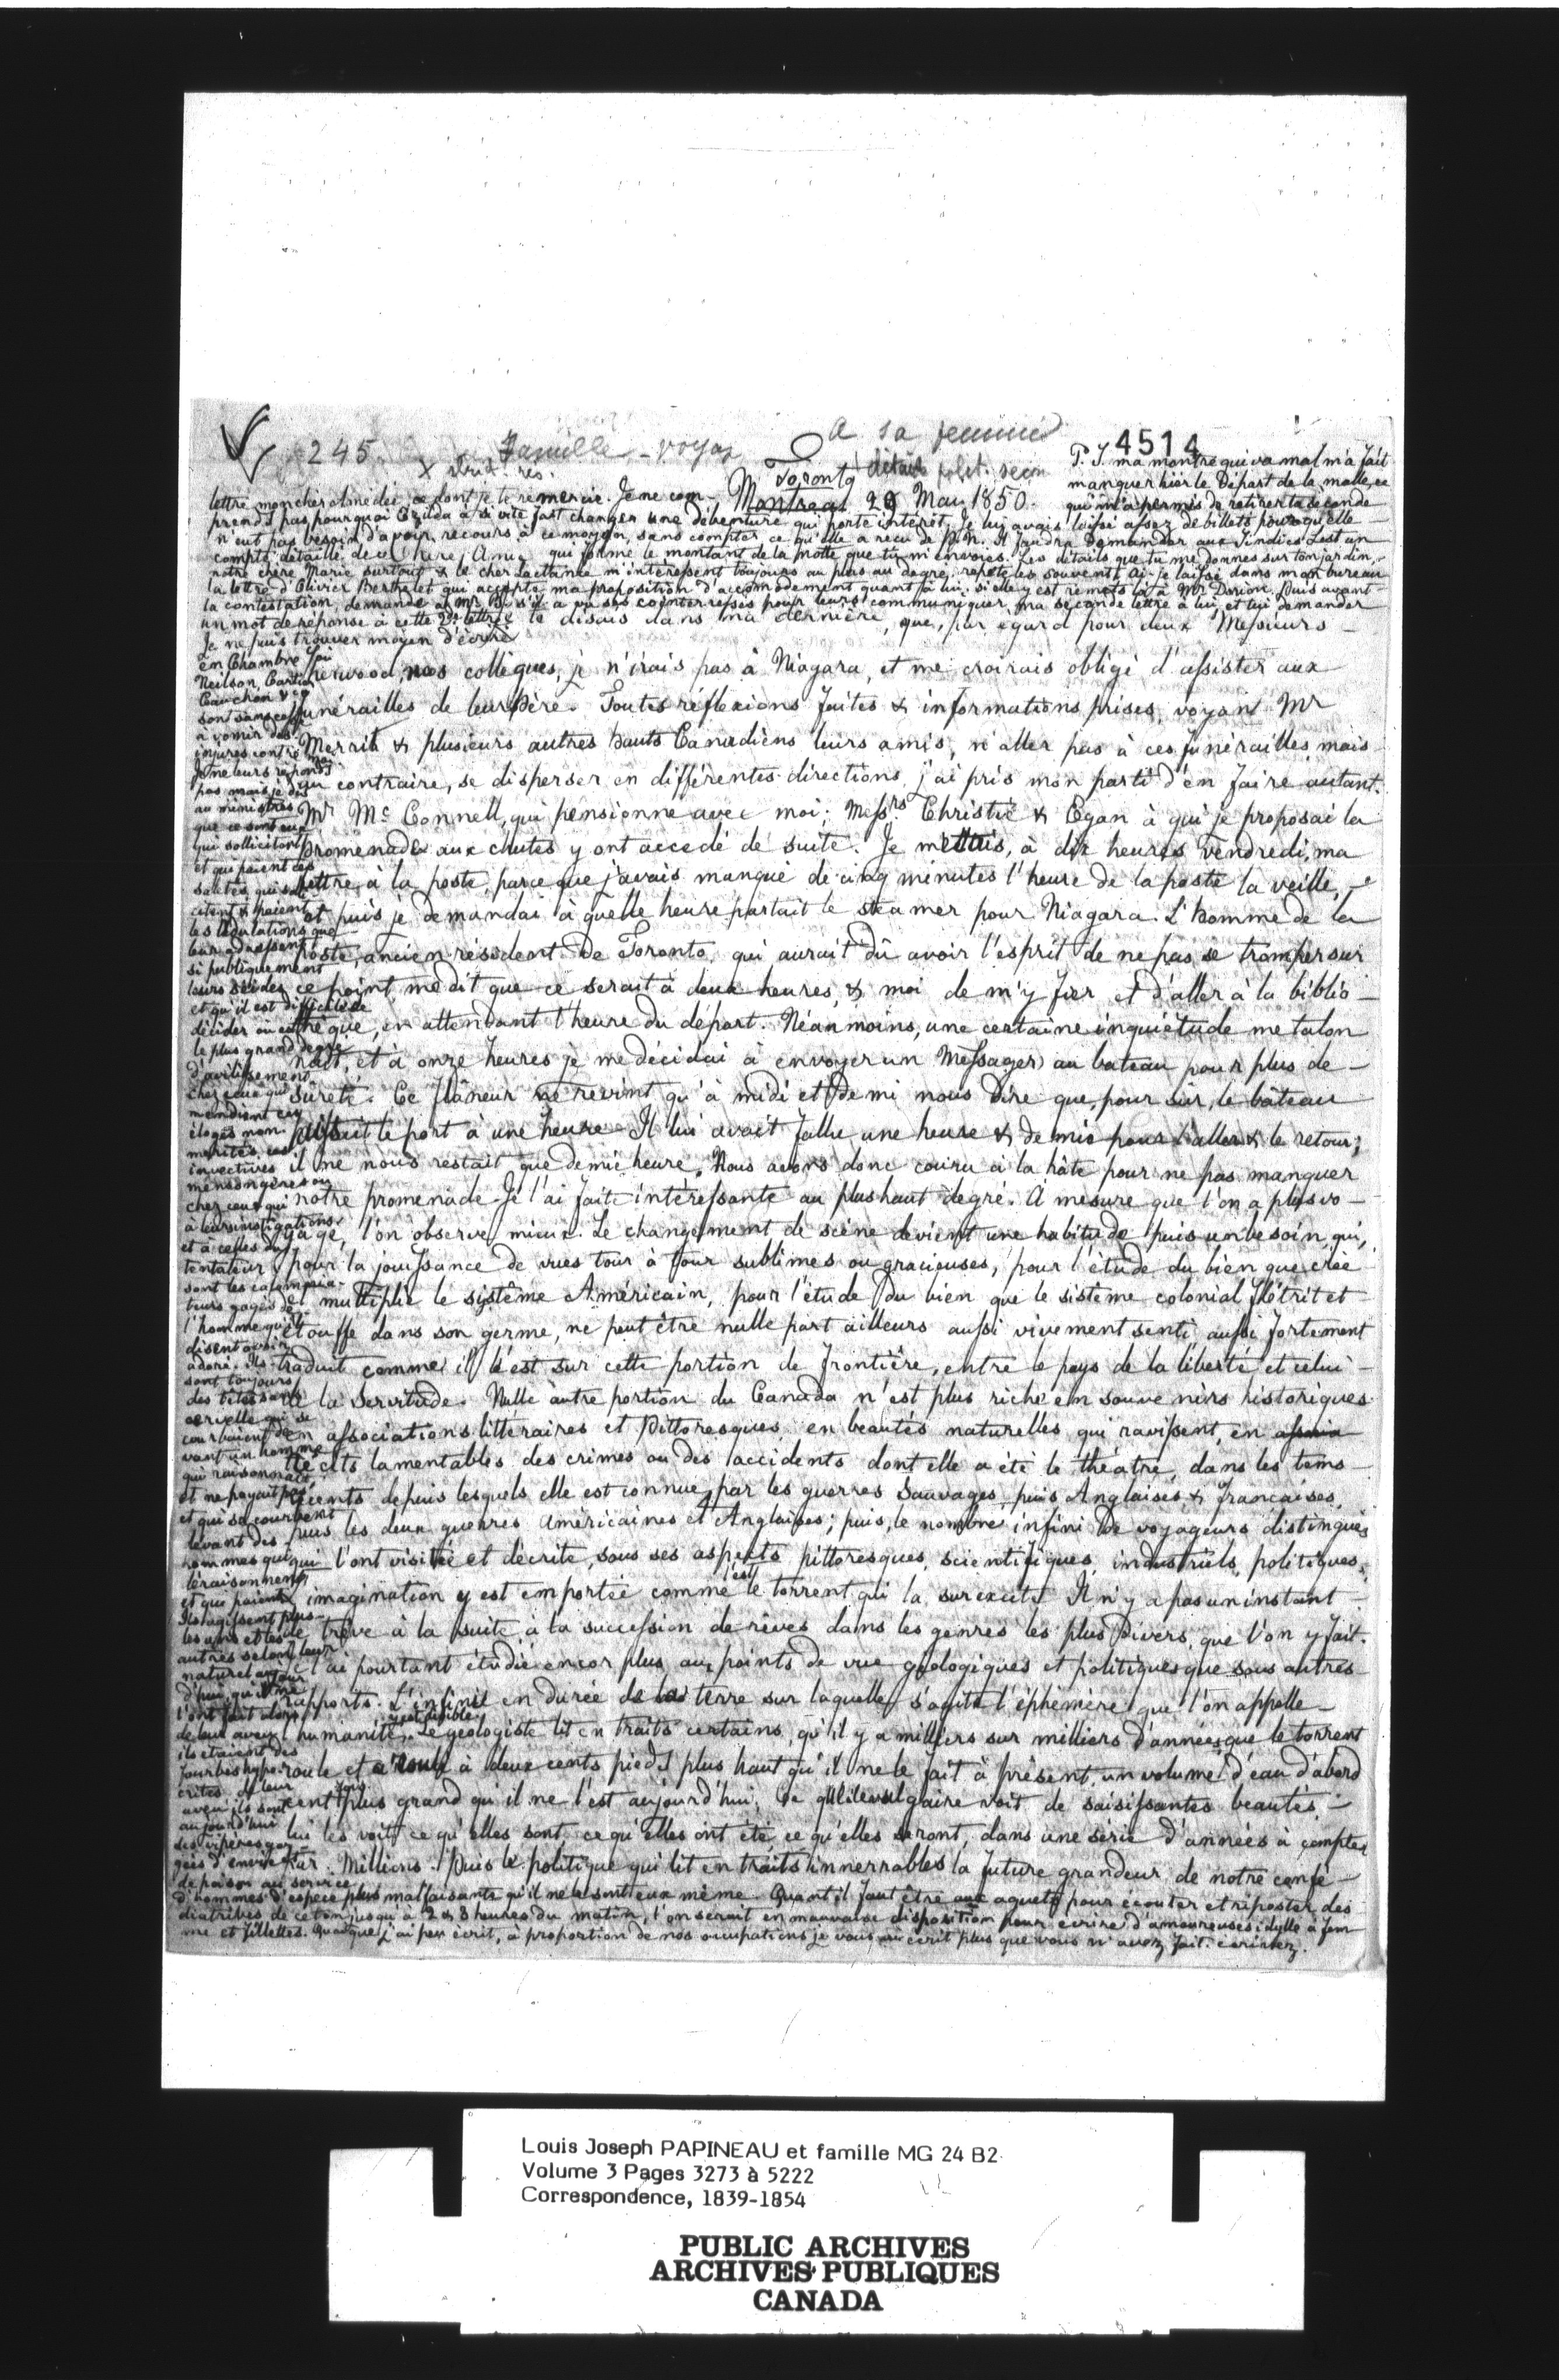 245
Famille - voyage
a sa femme
4514
détails polit.
Toronto
Montreal 28 May 1850.
P. S. ma montre qui va mal m'a fait
manquer hier le départ de la malle, ce
qui m'a permis de retirer ta seconde
lettre mon cher Amédée, ce dont je te remercie. Je ne com-
prends pas pourquoi Ezilda a si vite fait changer une débenture qui porte intérêt. Je lui avais laissé assez de billets pour qu'elle
n'eut pas besoin d'avoir recours à ce moyen, sans compter ce qu'elle a reçu de D. N. Il faudra demander aux Sindics Lest un
compte détaillé de ce qui forme le montant de la motte que tu m'envoies. Les détails que tu me donnes sur ton jardin,
Chere Amie
notre chère Marie surtout & le cher Lactance m'intéressent toujours au plus au degré, répète les souvent. Ai-je laissé dans mon bureau
la lettre d'Olivier Berthelet qui accepte ma proposition d'accomodement quant à lui. si elle y est remets la à Mr Dorion. Puis avant
la contestation, demande à Mr B. s'il a vu ses cointeressés pour leurs communiquer ma seconde lettre à lui, et lui demander
un mot de réponse à cette 2de lettre.
Je te disais dans ma dernière, que, par égard pour deux Messieurs
Sherwood, nos collègues, je n'irais pas à Niagara, et me croirais obligé d'assister aux
funérailles de leur Père. Toutes réflexions faites & informations prises, voyant Mr
Merrit & plusieurs autres hauts Canadiens leurs amis, n'aller pas à ces funérailles mais
au contraire, se disperser en différentes directions, j'ai pris mon parti d'en faire autant.
Mr Mc Connell, qui pensionne avec moi; Messrs Christie & Egan à qui je proposai la
promenade aux chutes y ont accédé de suite. Je mettais, à dix heures vendredi, ma
lettre à la poste, parce que j'avais manqué de cinq minutes l'heure de la poste la veille,
et puis je demandai à quelle heure partait le steamer pour Niagara. L'homme de la
poste, ancien résident de Toronto, qui aurait dû avoir l'esprit de ne pas se tromper sur
ce point me dit que ce serait à deux heures, & moi de m'y fier et d'aller à la biblio-
thèque, en attendant l'heure du départ. Néanmoins, une certaine inquiétude me talon
nait, et à onze heures je me décidai à envoyer un Messager au bateau pour plus de
sûreté. Ce flâneur ne revint qu'à midi et demi nous dire que, pour sûr, le bâteau
laissait le port à une heure. Il lui avait fallu une heure & demie pour l'aller & le retour;
il ne nous restait que demie heure. Nous avons donc couru à la hâte pour ne pas manquer
notre promenade. Je l'ai faite intéressante au plus haut degré. A mesure que l'on a plus vo-
yagé, l'on observe mieux. Le changement de scène devient une habitude puis un besoin, qui,
pour la jouissance de vues tour à tour sublimes ou gracieuses, pour l'étude du bien que crée
et multiplie le sistême Américain, pour l'étude du bien que le sistême colonial flétrit et
étouffe dans son germe, ne peut être nulle part ailleurs aussi vivement senti aussi fortement
traduit comme il l'est sur cette portion de frontière, entre le pays de la liberté et celui
de la Servitude. Nulle autre portion du Canada n'est plus riche en souvenirs historiques
en associations litteraires et Pittoresques, en beautés naturelles qui ravissent, en
récits lamentables des crimes ou des accidents dont elle a été le théâtre, dans les tems
récents depuis lesquels elle est connue, par les guerres Sauvages, puis Anglaises & françaises,
puis les deux guerres Américaines et Anglaises; puis, le nombre infini de voyageurs distingués
qui l'ont visitée et décrite, sous ses aspects pittoresques, scientifiques, industriels, politiques,
L'imagination y est emportée comme l'est le torrent qui la surexcite. Il n'y a pas un instant
de trêve à la suite à la succession de rêves dans les genres les plus divers, que l'on y fait.
Je l'ai pourtant étudié encor plus aux points de vue géologiques et politiques que sous autres
rapports. L'infinie en durée de la terre sur laquelle s'agite l'éphémère que l'on appelle
humanité, y est visible. Le géologiste lit en traits certains, qu'il y a milliers sur milliers d'années que le torrent
roule et a roulé à deux cents pieds plus haut qu'il ne le fait à présent, un volume d'eau d'abord
cent fois plus grand qu'il ne l'est aujourd'hui. Ce que le vulgaire voit de saisissantes beautés,
lui les voit, ce qu'elles sont, ce qu'elles ont été, ce qu'elles seront, dans une série d'années à compter
par Millions. Puis le politique qui lit en traits innerrables la future grandeur de notre confé-
Je ne puis trouver moyen d'écrire
en Chambre. J'ai
Neilson, Cartier
Cauchon & co
sont sans cesse
à vomir des
injures contre moi
Je ne leurs réponds
pas mais je dis
au ministres
que ce sont eux
qui sollicitent
et qui paient ces
saletés, qui solli-
citent & paient
les adulations que
leur adressent
si publiquement
leurs séides
et qu'il est difficile de
décider où est
le plus grand degré
d'avilissement
chez ceux qui
mendient ces
éloges non
mérités, ces
invectives
mensongères ou
chez ceux qui
à leurs instigations
et à celles du
tentateur
sont les calomnia-
teurs gagés de
l'homme qu'ils
disent avoir
adoré. Ils
sont toujours
des têtes sans
cervelle qui se
courbaient de
vant un homme
qui raisonnait,
et ne payait pas,
et qui se courbent
devant des
hommes qui
déraisonnent
et qui paient.
Ils agissent plus
les uns et les
autres selon leur
naturel aujour
d'hui, qu'il ne
l'ont fait alors
de leur aveu
ils étaient des
fourbes hypo-
crites. De leur
aveu ils sont
aujourd'hui
des vipères gor
gées d'envie &
de poison au service
d'hommes d'espèce plus malfaisante qu'il ne le sont eux même. Quant il faut être aux aguets pour écouter et riposter des
diatribes de ce ton jusqu'à 2 & 3 heures du matin, l'on serait en mauvaise disposition pour écrire d'amoureuses idylle à fem
me et fillettes. Quoique j'ai peu écrit, à proportion de nos occupations je vous ai écrit plus que vous n'avez fait. écrivez.
Louis Joseph PAPINEAU et famille MG 24 B2
Volume 3 Pages 3273 à 5222
Correspondence, 1839-1854
PUBLIC ARCHIVES
ARCHIVES PUBLIQUES
CANADA